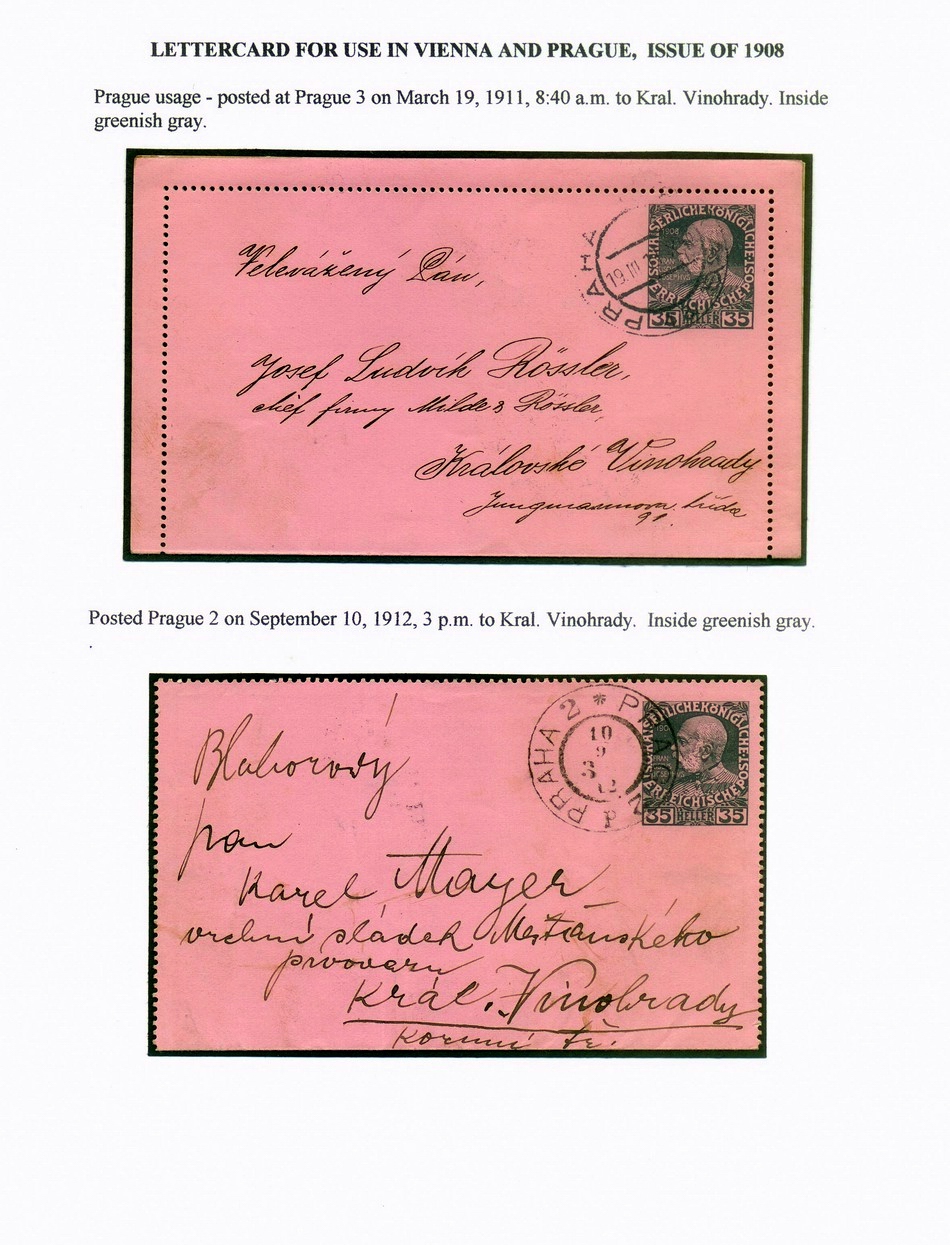 LETTERCARD FOR USE IN VIENNA AND PRAGUE, ISSUE OF 1908
Prague usage - posted at Prague 3 on March 19, 1911, 8:40 a.m. to Kral. Vinohrady. Inside
greenish gray.
PRAHA
19.III
1908
35 HELLER 35
Velevážený Pán,
Josef Ludvík Rössler,
chéf firmy Milde & Rössler,
Královské Vinohrady
Jungmannova třída
91.
Posted Prague 2 on September 10, 1912, 3 p.m. to Kral. Vinohrady. Inside greenish gray.
PRAHA 2 * PRAG
10
9
3
12
35 HELLER 35
Blahorodý
pan
Karel Mayer
vrchní sládek Měšťanského
pivovaru
Král. Vinohrady
Korunní tř.